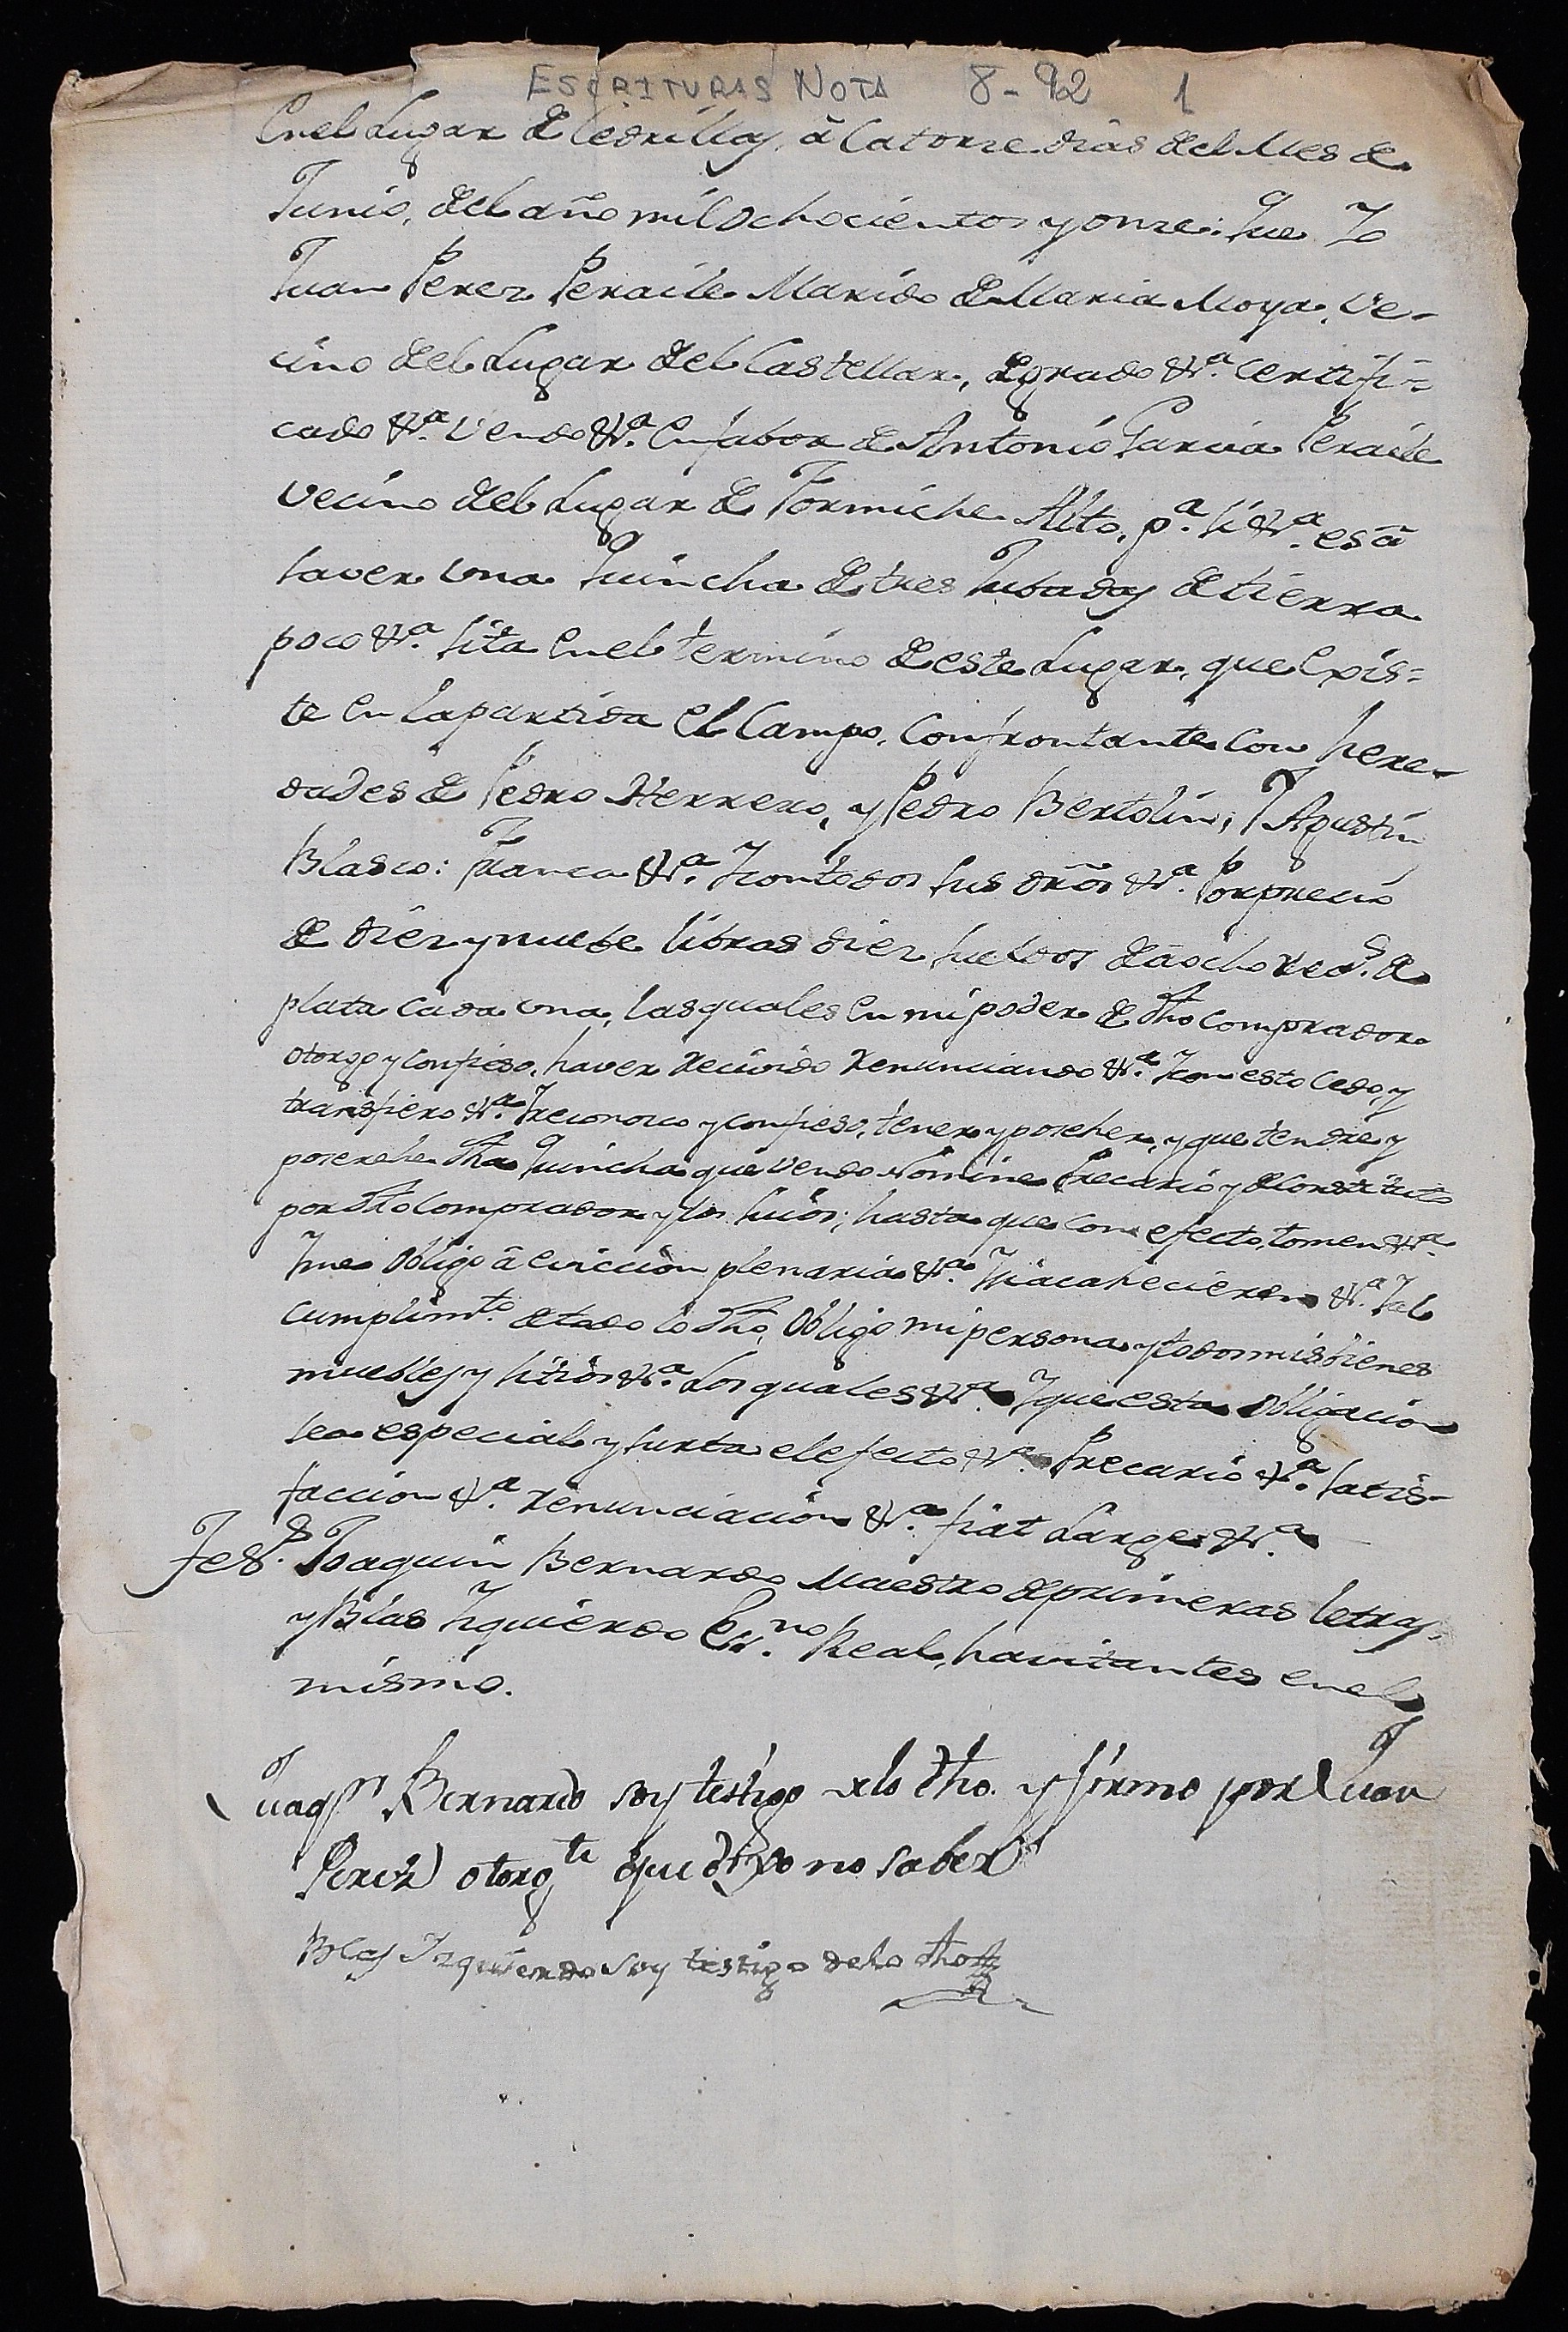 ESCRITURAS NOTA 8-92 1
En el Lugar de Cedrillas, à Catorze dias del Mes de
Junio, del año mil ochocientos y onze: Que Yo
Juan Perez Peraile Marido de Maria Moya, Ve-
cino del Lugar del Castellar, de grado &.ª Certifi-
cado &.ª Vendo &.ª En fabor de Antonio Garcia Peraile
vecino del Lugar de Formiche Alto, p.ª si &.ª es à
saver una Quincha de tres Jubadas de tierra
poco &.ª sita en el termino de este Lugar, que Exis-
te en la partida el Campo, Confrontante con here-
dades de Pedro Herrero, y Pedro Bertolin, Y Agustin
Blasco: franca &.ª Y con todos sus drõs &.ª Por precio
de diez y nuebe libras diez sueldos de à ocho rea.s de
plata cada una, las quales en mi poder de dho Comprador
otorgo y confieso, haver recivido renunciando &.ª Y con esto Cedo, y
transfiero &.ª Y reconozco y confieso, tener y poseher, y que tendre y
posehere dha Quincha que vendo Nomine Precario y de Constituto
por dho Comprador y los suios; hasta que con efecto, tomen &.ª
Y me Obligo à eviccion plenaria &.ª Y si acaheciere &.ª Y al
cumplim.to de todo lo dho, Obligo mi persona y todos mis bienes
muebles y sitios &.ª Los quales &.ª Y que esta Obligacion
sea especial y surta el efecto &.ª Precario &.ª satis-
faccion &.ª renunciacion &.ª fiat Large &.ª
Tes.s Joaquin Bernardo Maestro de primeras letras,
y Blas Yzquierdo Ess.no Real, havitantes en el
mismo.
Juaq.n Bernardo soy testigo de lo dho. y firmo por Juan
Perez otorg.te que dixo no saber
Blas Izquierdo soy testigo de lo dho